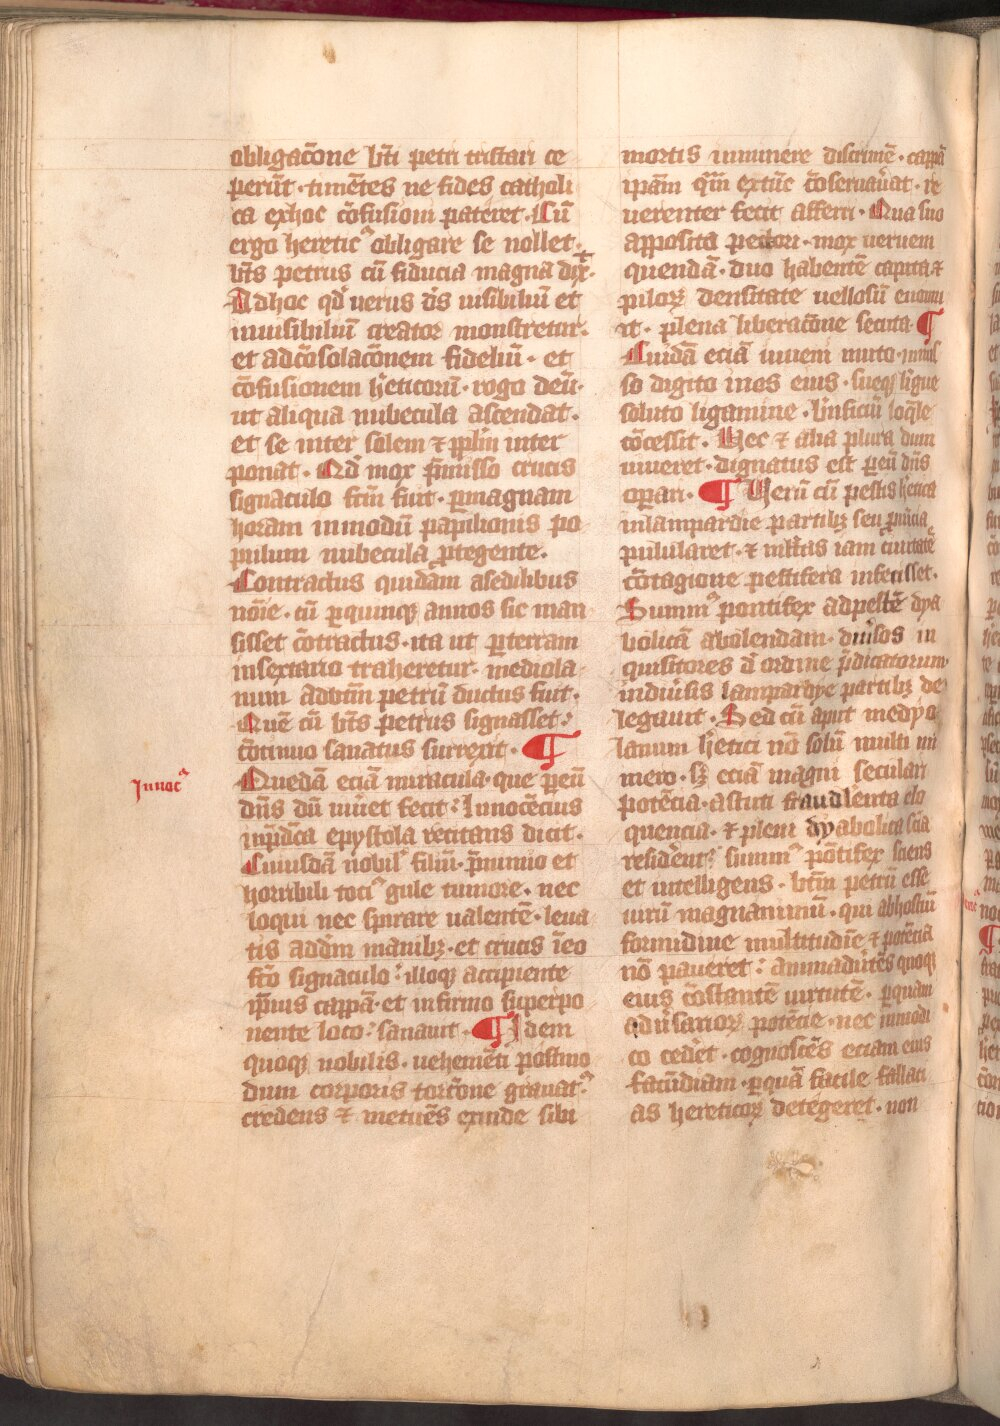 obligac̄one bt̄i petri tristari ce
perūt · timētes ne fides catholi
ca exhoc cōfusioni pateret · Cū
ergo heretic᷒ obligare se nollet ·
bt̄s petrus cū fiducia magna dix̄ ·
Adhoc qd̄ uerus ds̄ uisibiliū et
inuisibiliū creator monstretur ·
et adcōsolac̄onem fideliū · et
cōfusionem hēticorū · rogo deū ·
ut aliqua nubecula ascendat ·
et se inter solem ⁊ ppl̄m inter
ponat · Qd̄ mox p̄misso crucis
signaculo fc̄m fuit · ꝑmagnam
horam inmodū papilionis po
pulum nubecula ꝓtegente ·
Contractus quidam asedilibus
nōie · cū ꝑquinqꝫ annos sic man
sisset cōtractus · ita ut ꝑterram
insextario traheretur · mediola
num adbt̄m petrū ductus fuit ·
Quē cū bt̄s petrus signasset :
cōtinuo sanatus surrexit · ¶
Innoc᷒
Quedā eciā miracula · que ꝑeū
dn̄s dū uiuēt fecit : Innocēcius
inp̄dc̄a epystola recitans dicit ·
Cuiusdā nobil᷒ filiū · p̄nimio et
horribili toci᷒ gule tumore · nec
loqui nec spirare ualentē · leua
tis addn̄m manibꝫ · et crucis īeo
fc̄o signaculo : illoqꝫ accipiente
ip̄ius cappā · et infirmo superpo
nente loco : sanauit · ¶ Idem
quoqꝫ nobilis · uehemēti postmo
dum corporis torc̄one grauat᷒
credens ⁊ metuēs exinde sibi
mortis iminere discrimē · cappā
ip̄am q̄m extūc cōseruauat · re
uerenter fecit afferri · Qua suo
apposita pectori · mox uermem
quendā · duo habentē capita ⁊
piloꝝ densitate uellosū euomu
it · plena liberac̄one secuta · ¶
Cuidā eciā iuueni muto · īmis
so digito inos eius · sueqꝫ līgue
soluto ligamine · bn̄ficiū loq̄le
cōcessit · Hec ⁊ alia plura dum
uiueret · dignatus est ꝑeū dn̄s
operari · ¶ Uerū cū pestis hetica
inlampardie partibꝫ seu ꝓuīcia
pulularet · ⁊ ml̄tas iam ciuitatē
cōtagione pestifera infecisset ·
Summ᷒ pontifex adpestē dya
bolicā abolendam · diūsos in
quisitores d̄ ordine p̄dicatorum
indiūsis lampardye partibꝫ de
legauit · Sed cū aput medyo
lanum hētici nō solū multi nu
mero · sꝫ eciā magni seculari
potēcia · astuti fraudl̄enta elo
quencia · ⁊ pleni dyabolica scīa
residerent : summ᷒ pōtifex sciens
et intelligens · bt̄m petrū esse
uirū magnanimū · qui abhostiū
formidine multitudīe ⁊ potēcia
nō paueret : animaduertēs quoqꝫ
eius cōstantē uirtutē · ꝑquam
aduersarioꝝ potēcie · nec inmodi
co cederet · cognoscēs eciam eius
facūdiam · ꝑquā facile fallaci
as hereticoꝝ detegeret · non